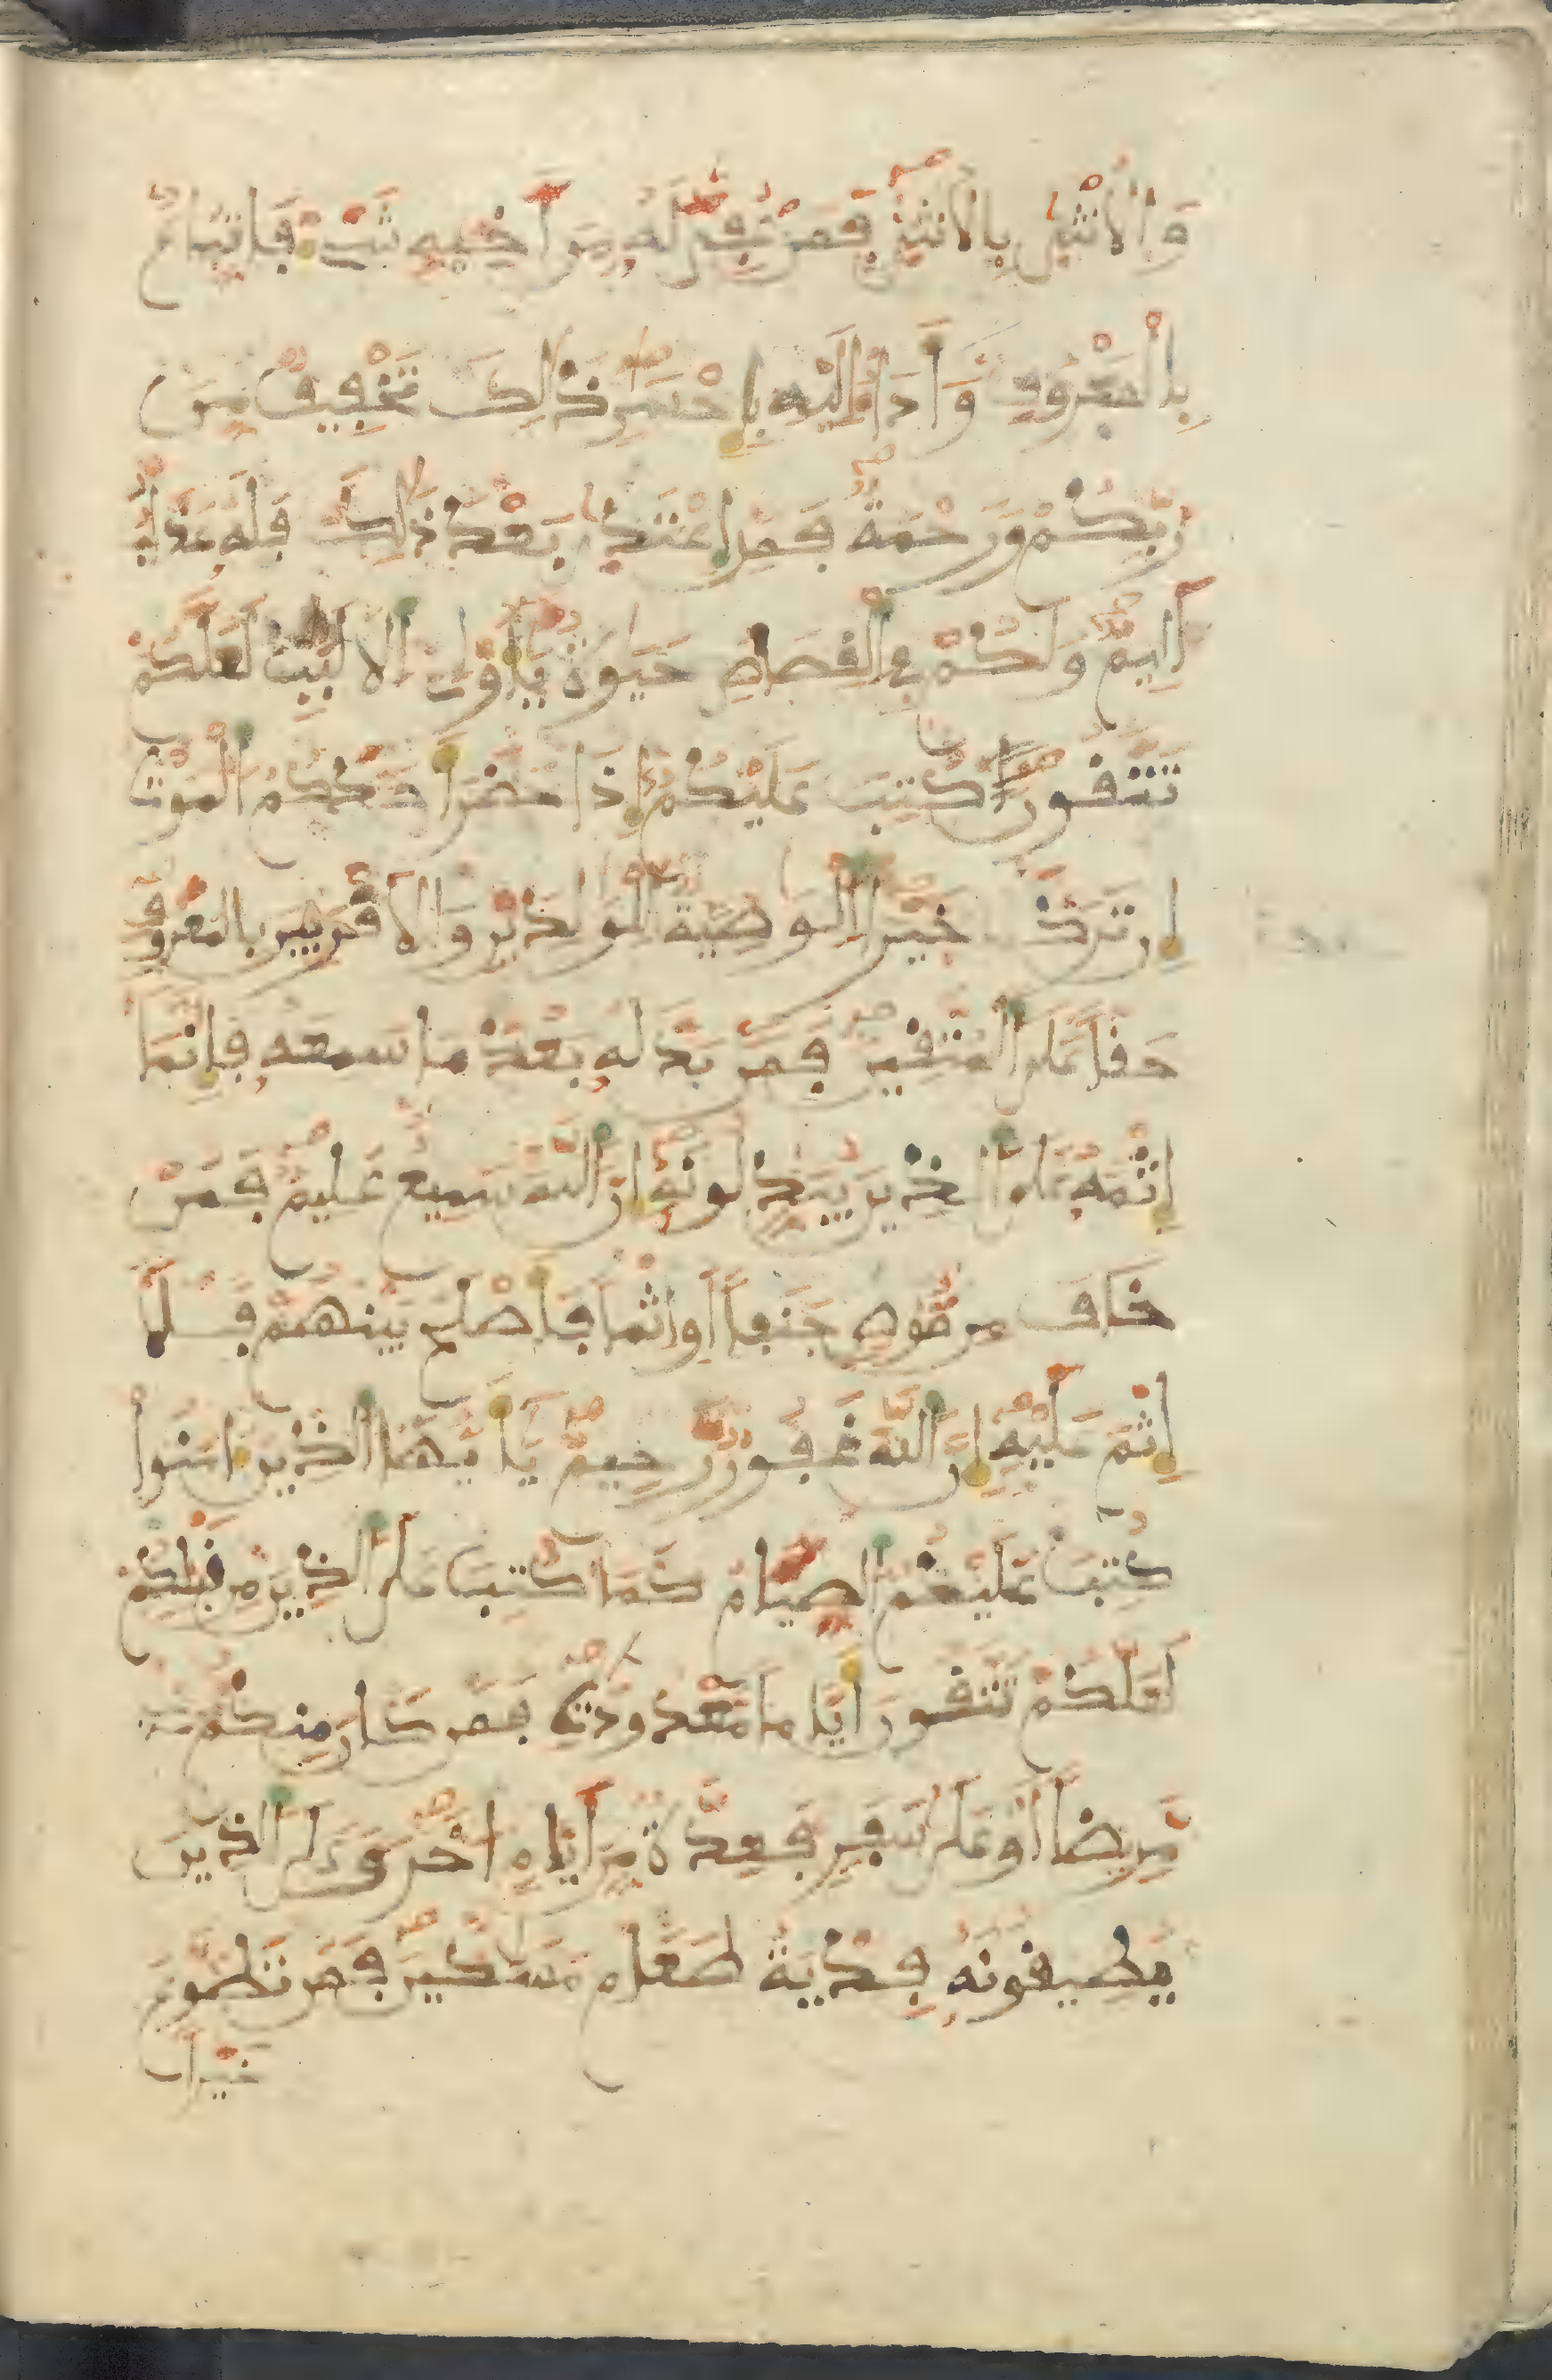 وَالْأُنثَىٰ بِالْأُنثَىٰ فَمَنْ عُفِيَ لَهُ مِنَ اَخِيهِ شَيْءٌ فَاتِّبَاعٌ
بِالْمَعْرُوفِ وَأَدَآءٌ اِلَيْهِ بِإِحْسَٰنٍ ذَٰلِكَ تَخْفِيفٌ مِّن
رَّبِّكُمْ وَرَحْمَةٌ فَمَنِ اعْتَدَىٰ بَعْدَ ذَٰلِكَ فَلَهُ عَذَابٌ
اَلِيمٌ وَلَكُمْ فِي الْقِصَاصِ حَيَوٰةٌ يَٰأُوْلِي الْأَلْبَٰبِ لَعَلَّكُمْ
تَتَّقُونَ كُتِبَ عَلَيْكُمْ إِذَا حَضَرَ أَحَدَكُمُ الْمَوْتُ
إِن تَرَكَ خَيْرًا الْوَصِيَّةُ لِلْوَٰلِدَيْنِ وَالْأَقْرَبِينَ بِالْمَعْرُوفِ
حَقًّا عَلَى الْمُتَّقِينَ فَمَنْ بَدَّلَهُ بَعْدَ مَا سَمِعَهُ فَإِنَّمَا
إِثْمُهُ عَلَى الَّذِينَ يُبَدِّلُونَهُ إِنَّ اللَّهَ سَمِيعٌ عَلِيمٌ فَمَنْ
خَافَ مِن مُّوصٍ جَنَفًا أَوِ اثْمًا فَأَصْلَحَ بَيْنَهُمْ فَلَآ
إِثْمَ عَلَيْهِ إِنَّ اللَّهَ غَفُورٌ رَّحِيمٌ يَٰأَيُّهَا الَّذِينَ ءَامَنُواْ
كُتِبَ عَلَيْكُمُ الصِّيَامُ كَمَا كُتِبَ عَلَى الَّذِينَ مِن قَبْلِكُمْ
لَعَلَّكُمْ تَتَّقُونَ أَيَّامًا مَّعْدُودَٰتٍ فَمَن كَانَ مِنكُم
مَّرِيضًا أَوْ عَلَىٰ سَفَرٍ فَعِدَّةٌ مِّنَ أَيَّامٍ اُخَرَ وَعَلَى الَّذِينَ
يُطِيقُونَهُ فِدْيَةُ طَعَامِ مَسَٰكِينَ فَمَن تَطَوَّعَ
خَيْرًا